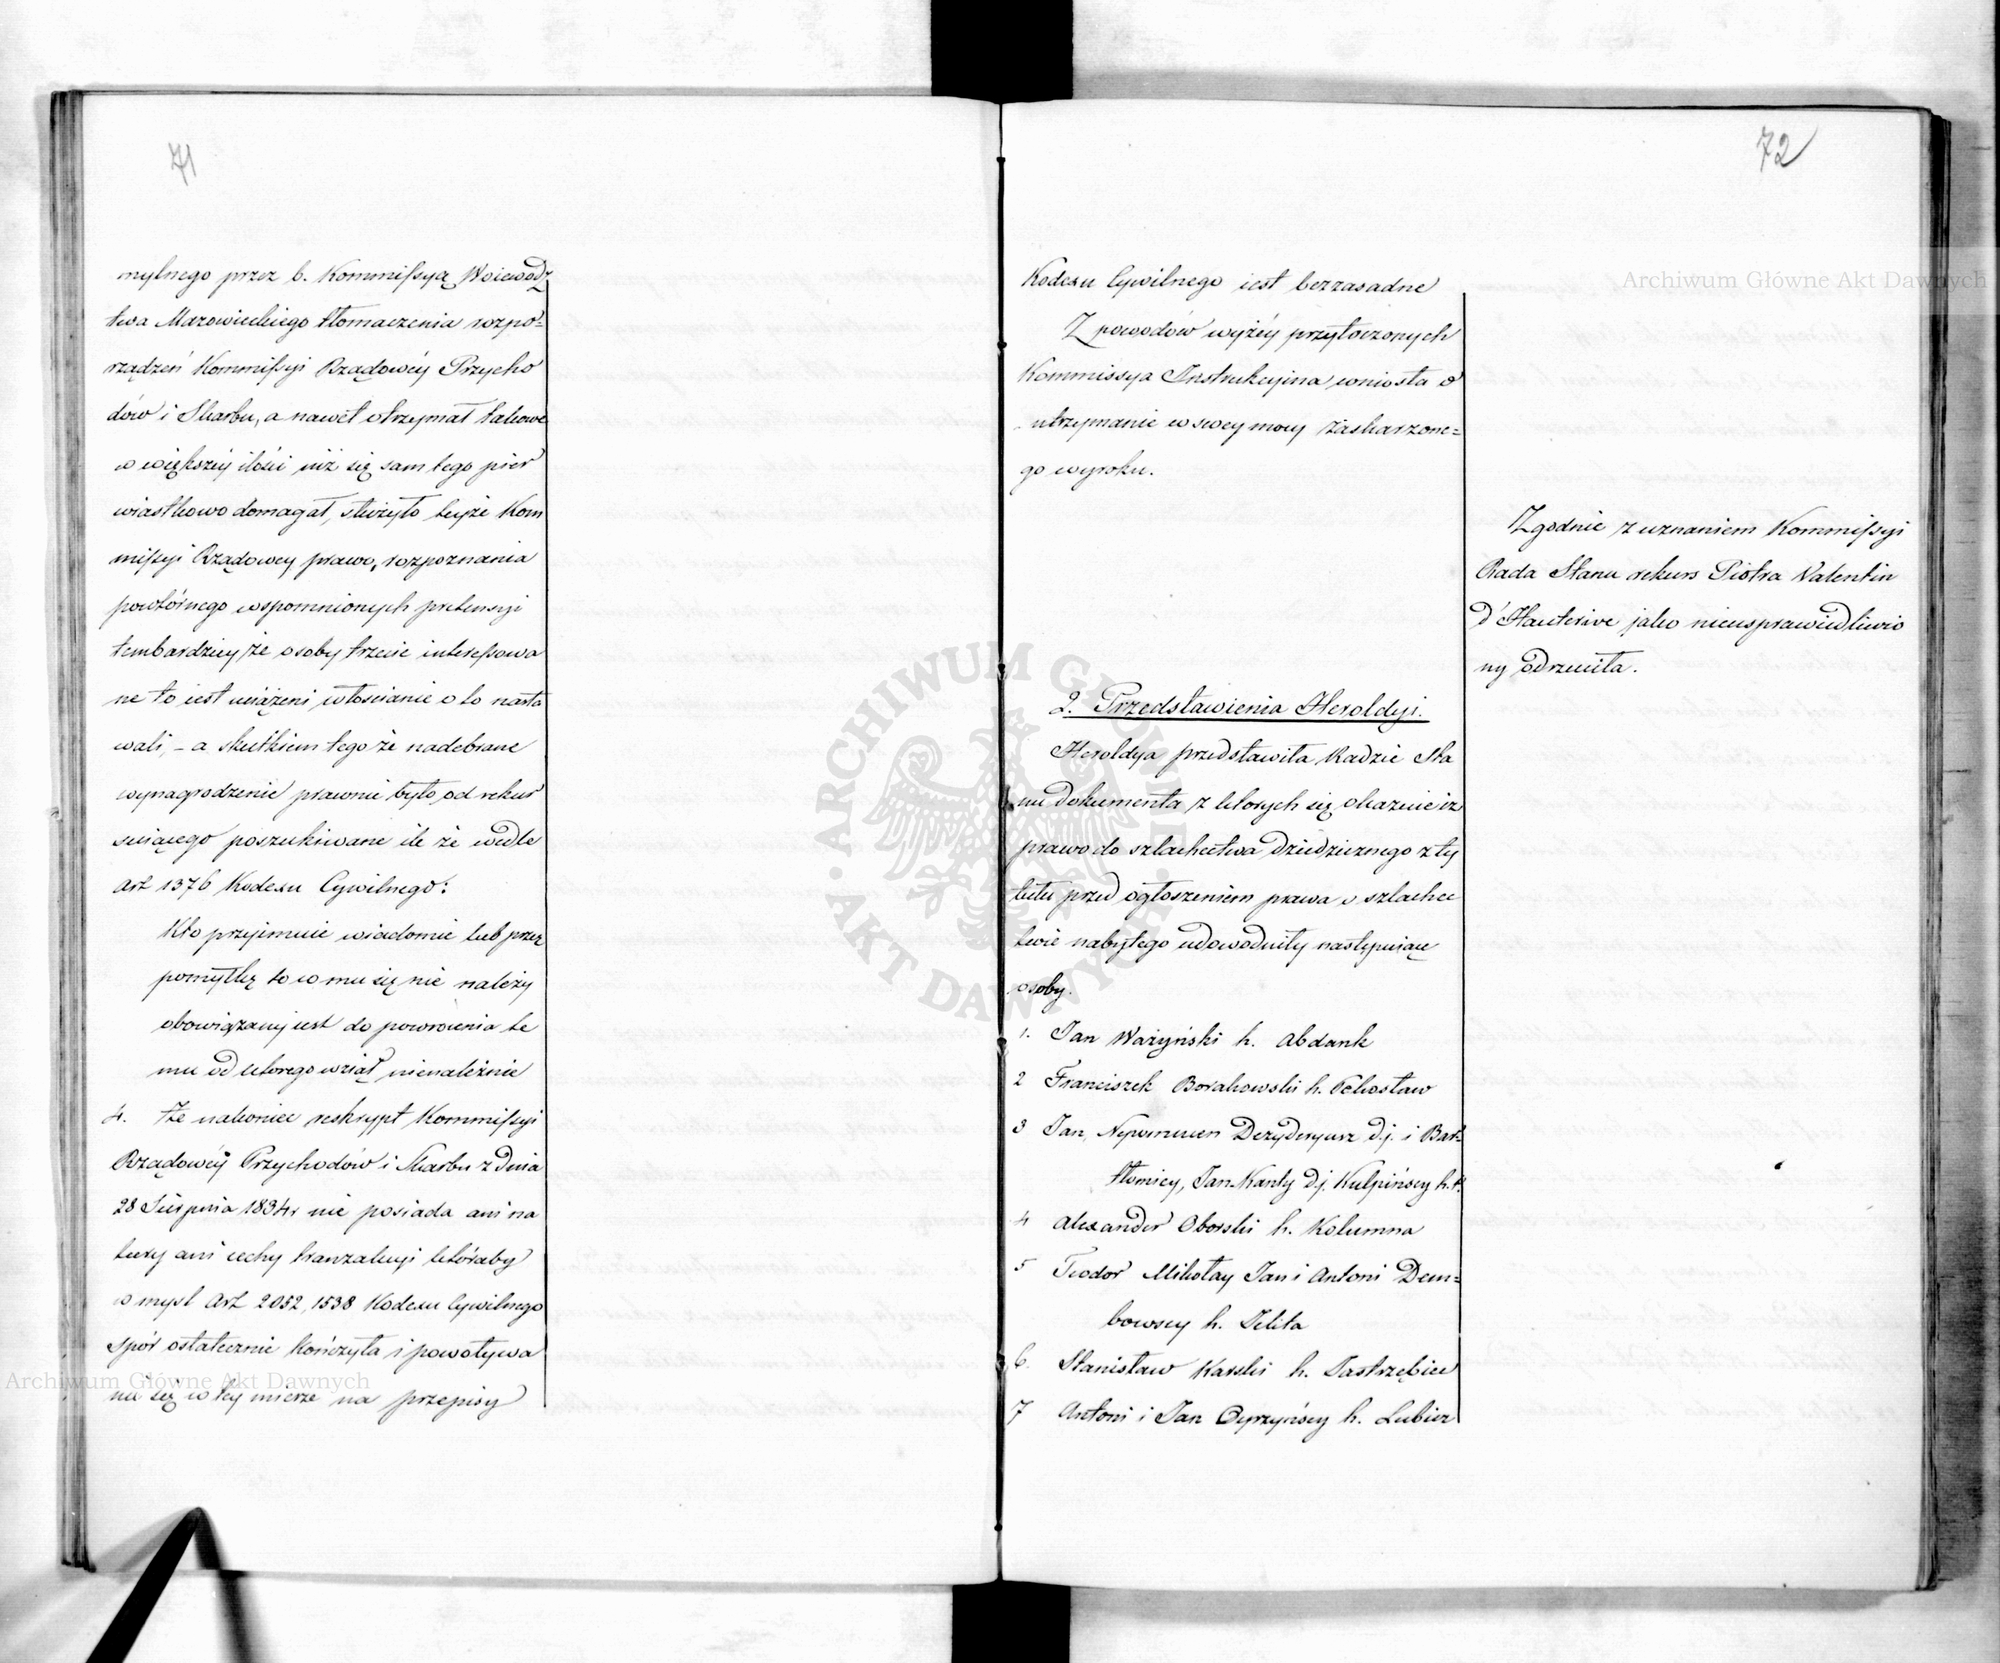 71
mylnego przez b. Kommissyą Woiewodz
twa Mazowieckiego tłomaczenia rozpo=
rządzeń Kommissyi Rządowéy Przycho
dów i Skarbu, a nawet otrzymał takowe
w większéy ilości niż się sam tego pier
wiastkowo domagał, służyło teyże Kom
missyi Rządowey prawo, rozpoznania
powtórnego wspomnionych pretensyi
tembardziey że osoby trzecie interessowa
ne to iest uciążeni włościanie o to nasta
wali, – a skutkiem tego że nadebrane
wynagrodzenie prawnie było od rekur
suiącego poszukiwane ile że wedle
Art 1376 Kodexu Cywilnego:
Kto przyimuie wiadomie lub przez
pomyłkę to co mu się nie należy
obowiązany iest do powrócenia te
mu od którego wziął nienależnie
4. Że nakoniec reskrypt Kommissyi
Rządowéy Przychodów i Skarbu z dnia
28 Sierpnia 1834 r nie posiada ani na
tury ani cechy tranzakcyi któraby
w mysl Art 2052, 1538 Kodexu Cywilnego
spór ostatecznie kończyła i powoływa
nie się w tey mierze na przepisy
72
Kodexu Cywilnego iest bezzasadne
Z powodów wyżéy przytoczonych
Kommissya Instrukcyina wniosła o
utrzymanie w swey mocy zaskarżone=
go wyroku.
Zgodnie z uznaniem Kommissyi
Rada Stanu rekurs Piotra Valentin
d'Hauterive jako nieusprawiedliwio
ny odrzuciła.
2. Przedstawienia Heroldyi.
Heroldya przedstawiła Radzie Sta
nu dokumenta z których się okazuie iż
prawo do szlachectwa dziedzicznego z ty
tułu przed ogłoszeniem prawa o szlachec
twie nabytego udowodniły następuiące
osoby.
1. Jan Ważyński h. Abdank
2 Franciszek Borakowski h. Pchostaw
3 Jan Nepomucen Dezyderyusz d.j. i Bar=
tłomiey, Jan Kanty d.j. Kulpińscy h.
4 Alexander Oborski h. Kolumna
5 Teodor Mikołay Jan i Antoni Dem=
bowscy h. Jelita
6. Stanisław Karski h. Jastrzębiec
7 Antoni i Jan Cyrzyńscy h. Lubicz
ARCHIWUM GŁÓWNE AKT DAWNYCH
Archiwum Główne Akt Dawnych
Archiwum Główne Akt Dawnych